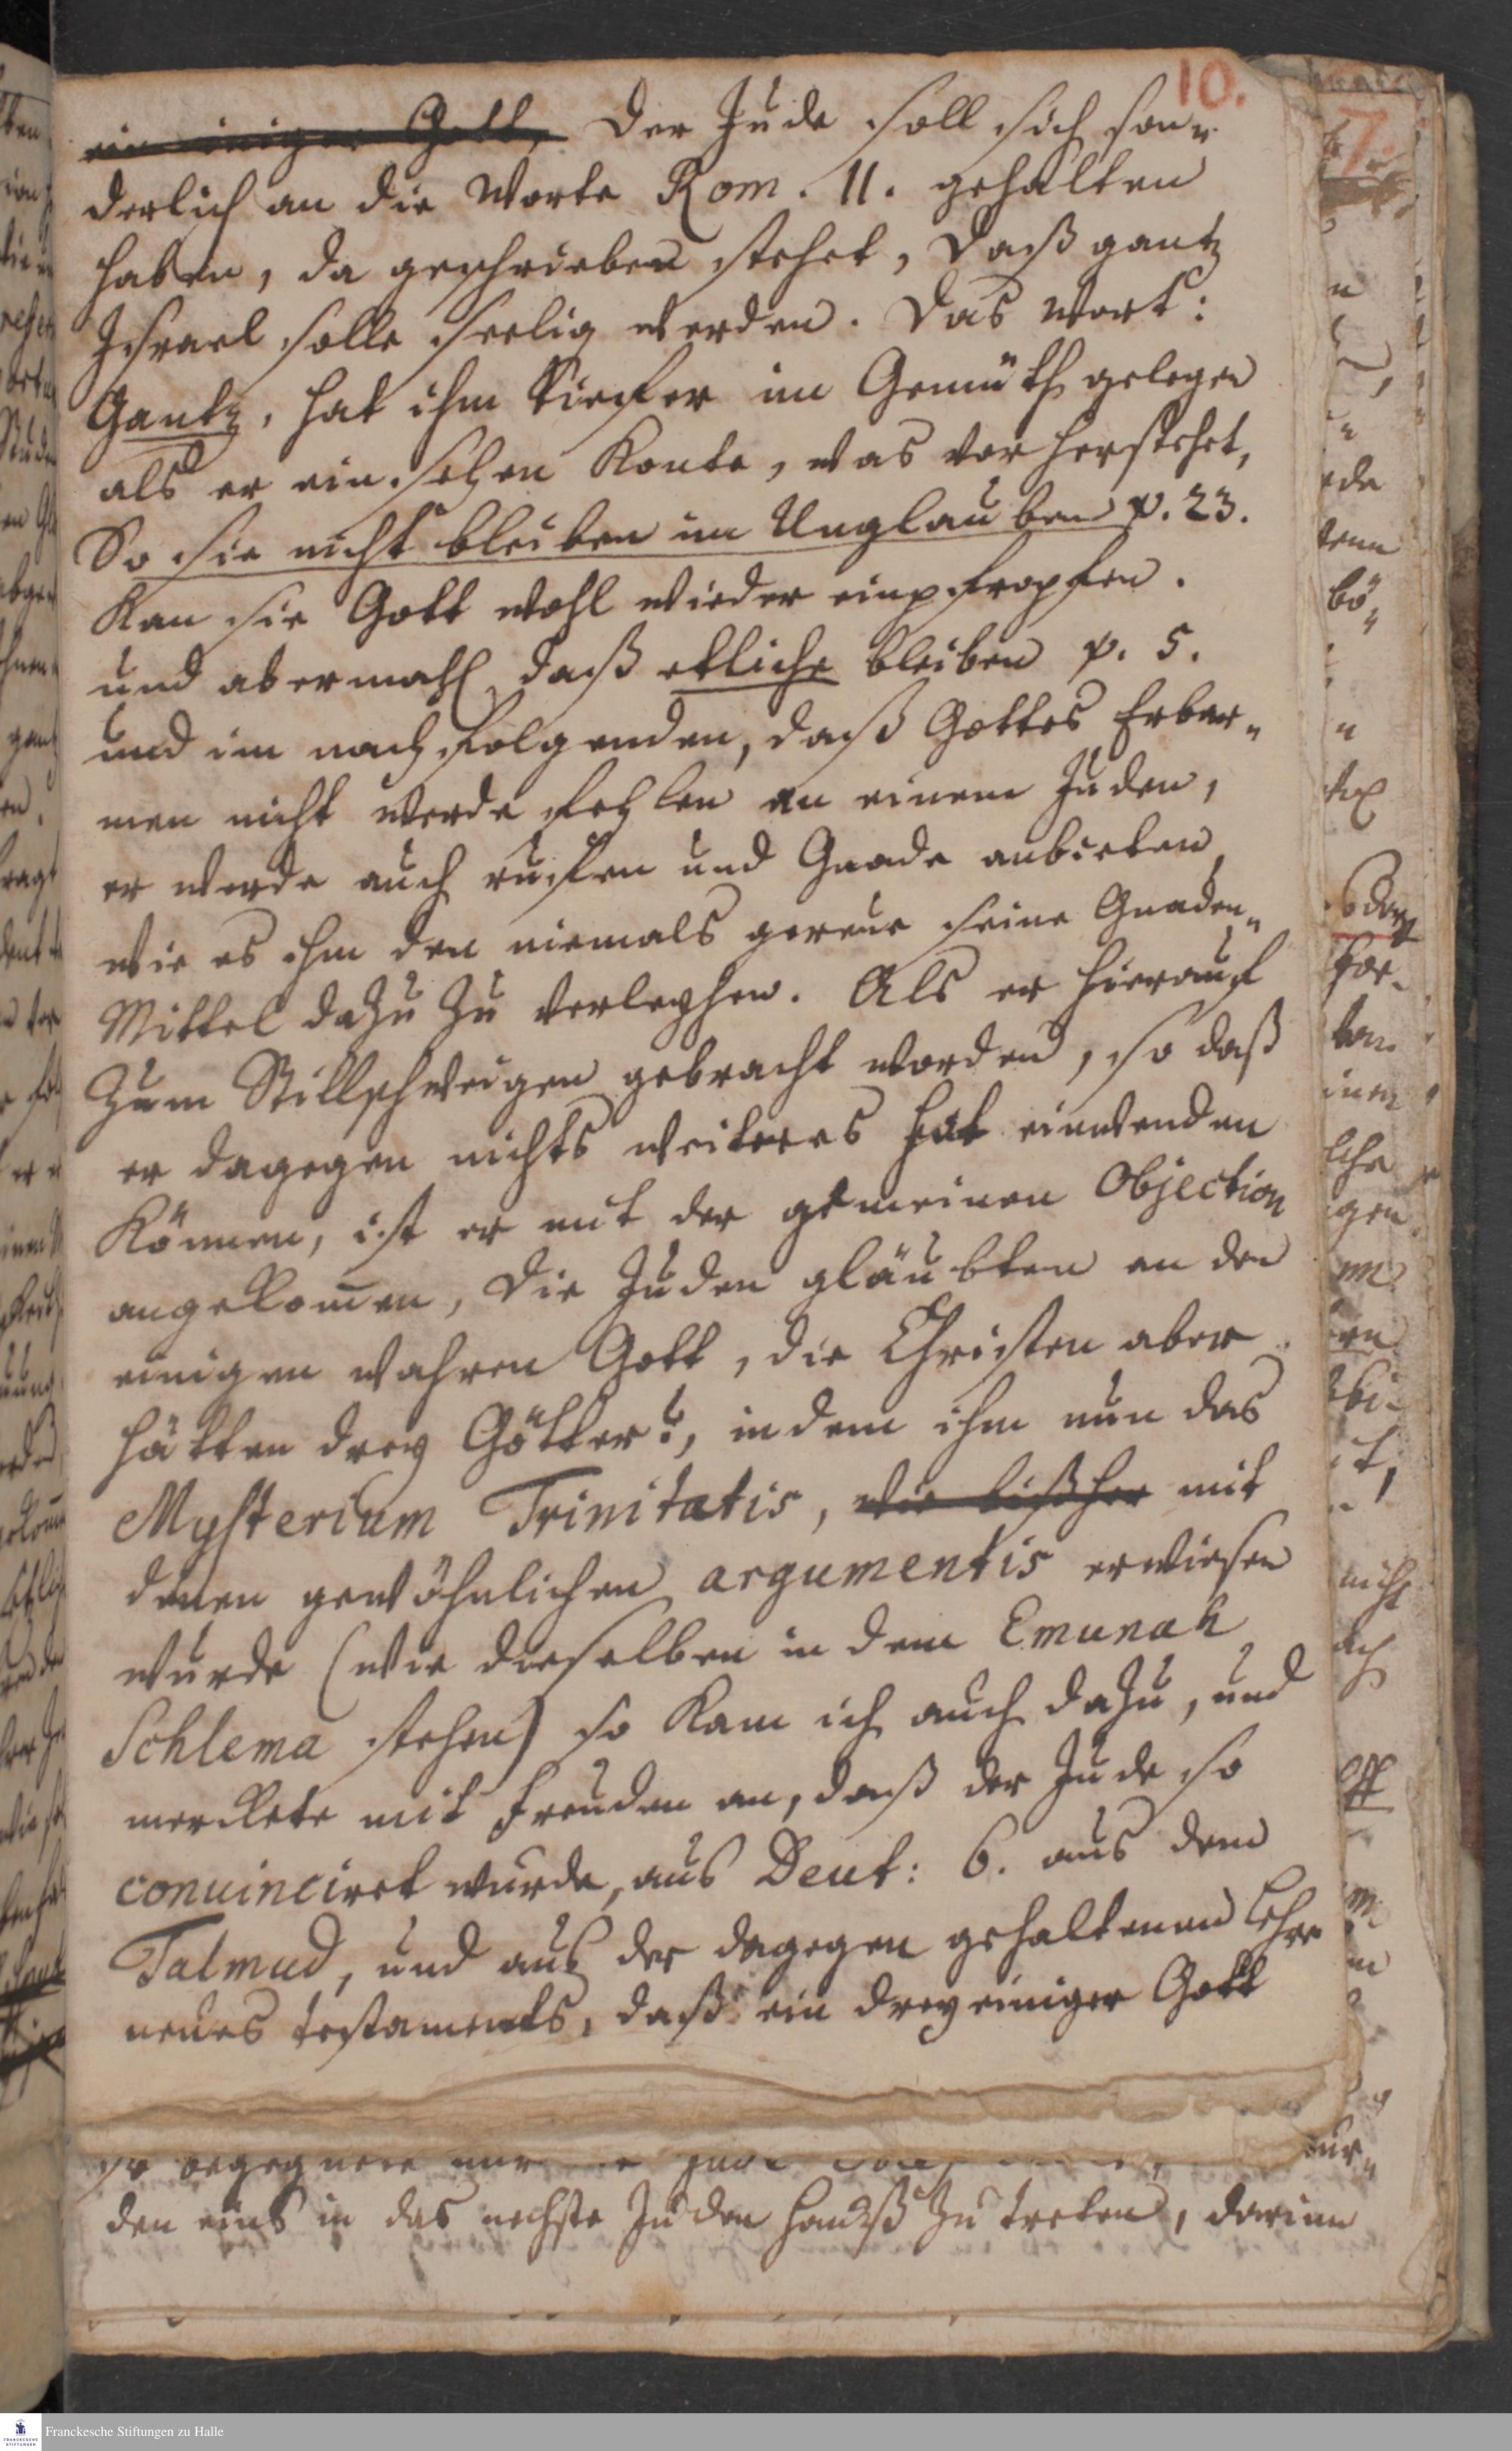 10.
ein einiger Gott, Der Jude soll sich son„
derlich an die Worte Rom. 11. gehalten
haben, da geschrieben stehet, daß gantz
Israel solle seelig werden. Das Wort:
Gantz, hat ihm tieffer im Gemüth gelegen
als er einsehen konte, was vorherstehet,
So sie nicht bleiben im Unglauben v. 23.
kan sie Gott wohl wieder einpfropfen.
und abermahl, daß etliche bleiben v. 5.
und im nachfolgenden, daß Gottes Erbar„
men nicht werde fehlen an einem Juden,
er werde auch ruffen und Gnade anbieten,
wie es ihm den niemals gereue seine Gnaden„
Mittel dazu zu verleyhen. Als er hierauf
zum Stillschweigen gebracht worden, so daß
er dagegen nichts weiteres hat einwenden
können, ist er mit der gemeinen Objection
angekom̄en, die Juden gläubten an den
einigen wahren Gott, die Christen aber
hätten drey Götter?, indem ihm nun das
Mysterium Trinitatis, wie bißher mit
denen gewöhnlichen argumentis erwiesen
wurde (wie dieselben in dem Emunah
Schlema stehen) so kam ich auch dazu, und
merckete mit Freuden an, daß der Jude so
convinciret wurde, aus Deut: 6. aus dem
Talmud, und aus der dagegen gehaltenen Lehre
neues Testaments, daß ein dreyeiniger Gott
so begegnete mir
den eins in das nechste Juden Hauß zu treten, darinn
Franckesche Stiftungen zu Halle